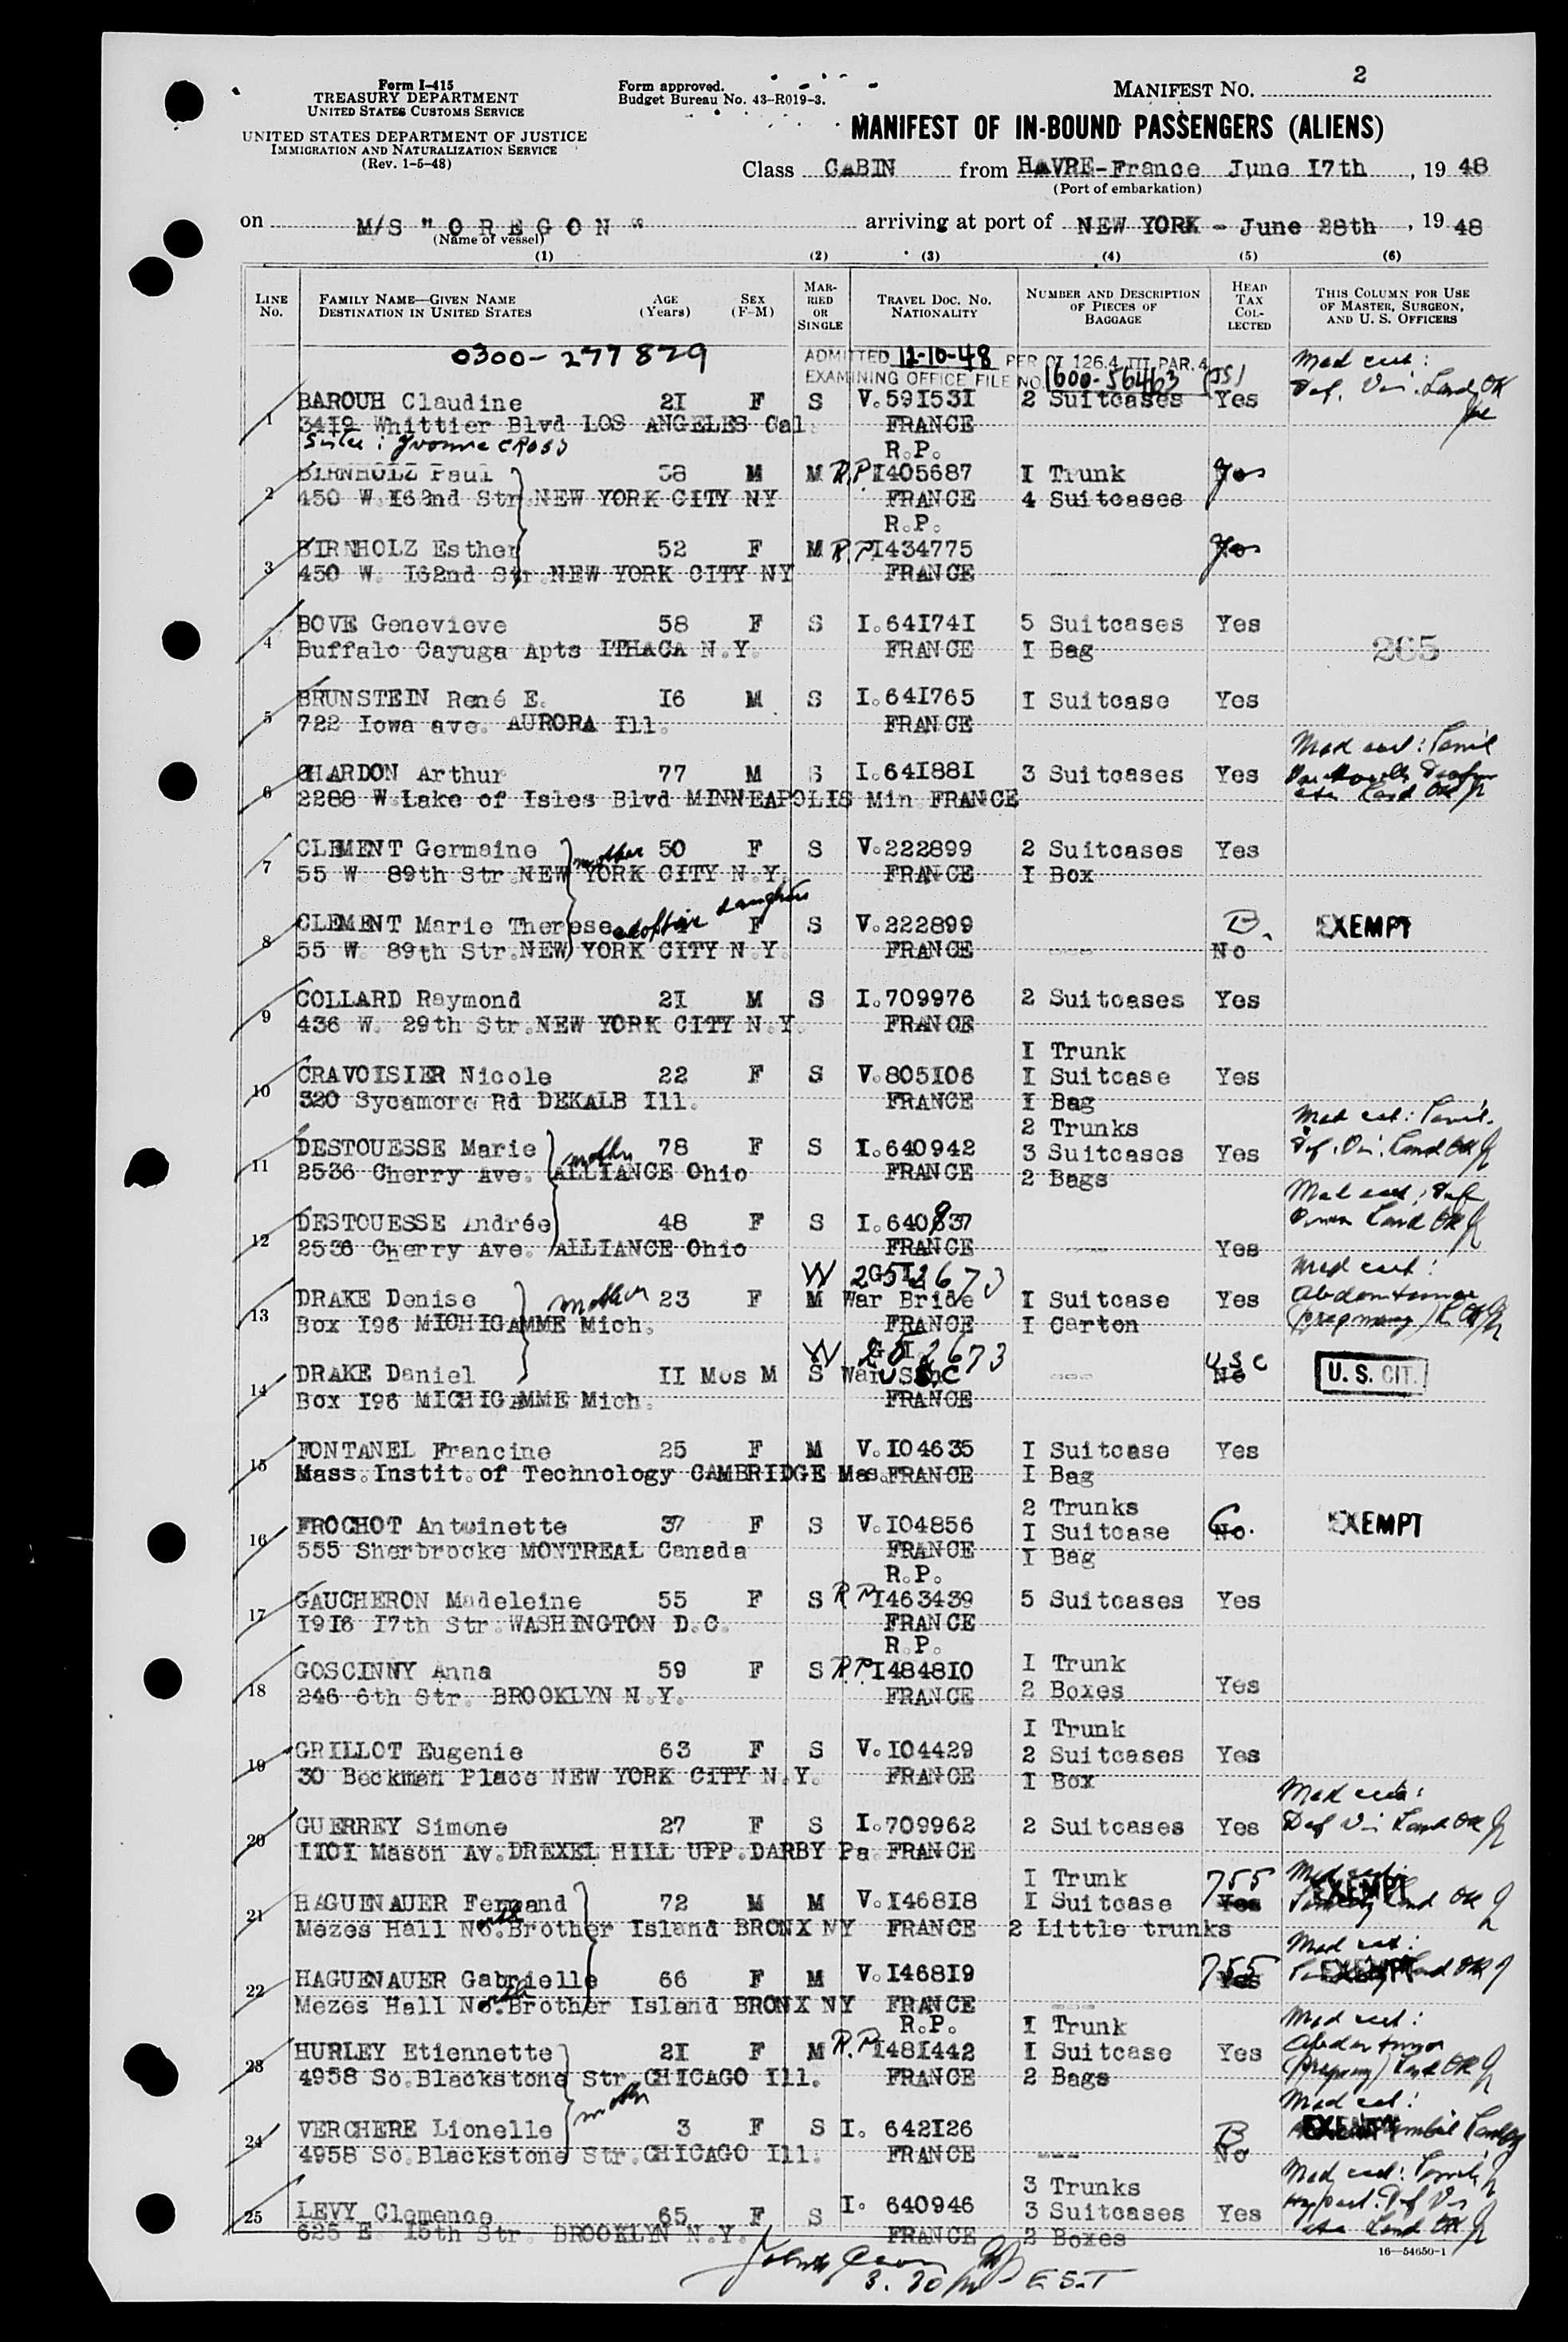 Form I-415
TREASURY DEPARTMENT
UNITED STATES CUSTOMS SERVICE
UNITED STATES DEPARTMENT OF JUSTICE
IMMIGRATION AND NATURALIZATION SERVICE
(Rev. 1-5-48)
Form approved.
Budget Bureau No. 43-R019-3.
MANIFEST NO. 2
MANIFEST OF IN-BOUND PASSENGERS (ALIENS)
Class CABIN from HAVRE-France June I7th, 19 48
(Port of embarkation)
on M/S "OREGON" arriving at port of NEW YORK - June 28th, 19 48
(Name of vessel)
(1) (2) (3) (4) (5) (6)
LINE No. FAMILY NAME—GIVEN NAME DESTINATION IN UNITED STATES AGE (Years) SEX (F-M) MARRIED OR SINGLE TRAVEL DOC. NO. NATIONALITY NUMBER AND DESCRIPTION OF PIECES OF BAGGAGE HEAD TAX COLLECTED THIS COLUMN FOR USE OF MASTER, SURGEON, AND U. S. OFFICERS
0300-277829 ADMITTED 12-10-48 PER OI 126.4 III PAR. 4 Med cert:
EXAMINING OFFICE FILE NO. 1600-56463 (JS)
1 BAROUH Claudine 2I F S V.59I53I 2 Suitcases Yes Def. Vis. Land OK
34I9 Whittier Blvd LOS ANGELES Cal. FRANCE
Sister: Yvonne CROSS R.P.
2 BIRNHOLZ Paul 58 M M R.P. I405687 I Trunk Yes
450 W.I62nd Str.NEW YORK CITY NY FRANCE 4 Suitcases
R.P.
3 BIRNHOLZ Esther 52 F M R.P. I434775 Yes
450 W. I62nd Str.NEW YORK CITY NY FRANCE
4 BOVE Genevieve 58 F S I.64I74I 5 Suitcases Yes
Buffalo Cayuga Apts ITHACA N.Y. FRANCE I Bag 265
5 BRUNSTEIN René E. I6 M S I.64I765 I Suitcase Yes
722 Iowa ave. AURORA Ill. FRANCE
6 CHARDON Arthur 77 M S I.64I88I 3 Suitcases Yes Med cert: Senil
2288 W.Lake of Isles Blvd MINNEAPOLIS Min FRANCE Land OK
7 CLEMENT Germaine mother 50 F S V.222899 2 Suitcases Yes
55 W 89th Str.NEW YORK CITY N.Y. FRANCE I Box
8 CLEMENT Marie Therese adoptive daughter F S V.222899 B. EXEMPT
55 W. 89th Str.NEW YORK CITY N.Y. FRANCE --- No
9 COLLARD Raymond 2I M S I.709976 2 Suitcases Yes
436 W. 29th Str.NEW YORK CITY N.Y. FRANCE
I Trunk
10 CRAVOISIER Nicole 22 F S V.805I06 I Suitcase Yes
320 Sycamore Rd DEKALB Ill. FRANCE I Bag
2 Trunks Med cert: Senil.
11 DESTOUESSE Marie mother 78 F S I.640942 3 Suitcases Yes Def. Vis. Land OK
2536 Cherry Ave. ALLIANCE Ohio FRANCE 2 Bags
Med cert: Def
12 DESTOUESSE Andrée 48 F S I.640937 Vision Land OK
2536 Cherry Ave. ALLIANCE Ohio FRANCE --- Yes
W 252673 Med cert:
13 DRAKE Denise mother 23 F M War Bride I Suitcase Yes Abdom tumor
Box I96 MICHIGAMME Mich. FRANCE I Carton (pregnancy) L OK
W 252673
14 DRAKE Daniel II Mos M S War Son USC --- No USC U. S. CIT.
Box I96 MICHIGAMME Mich. FRANCE
15 FONTANEL Francine 25 F M V.I04635 I Suitcase Yes
Mass.Instit.of Technology CAMBRIDGE Mas.FRANCE I Bag
2 Trunks
16 FROCHOT Antoinette 37 F S V.I04856 I Suitcase No. C EXEMPT
555 Sherbrooke MONTREAL Canada FRANCE I Bag
R.P.
17 GAUCHERON Madeleine 55 F S R.P. I463439 5 Suitcases Yes
I9I6 I7th Str.WASHINGTON D.C. FRANCE
R.P.
18 GOSCINNY Anna 59 F S R.P. I4848I0 I Trunk
246 6th Str. BROOKLYN N.Y. FRANCE 2 Boxes Yes
I Trunk
19 GRILLOT Eugenie 63 F S V.I04429 2 Suitcases Yes
30 Beekman Place NEW YORK CITY N.Y. FRANCE I Box
Med cert:
20 GUERREY Simone 27 F S I.709962 2 Suitcases Yes Def Vis Land OK
II0I Mason Av.DREXEL HILL UPP.DARBY Pa FRANCE
I Trunk 755 Med cert:
21 HAGUENAUER Fernand 72 M M V.I468I8 I Suitcase Yes EXEMPT Senility Land OK
Mezes Hall No.rth Brother Island BRONX NY FRANCE 2 Little trunks
Med cert:
22 HAGUENAUER Gabrielle 66 F M V.I468I9 755 Yes EXEMPT Land OK
Mezes Hall No.rth Brother Island BRONX NY FRANCE ---
R.P. I Trunk Med cert:
23 HURLEY Etiennette 2I F M R.P. I48I442 I Suitcase Yes Abdom tumor
4958 So.Blackstone Str.CHICAGO Ill. FRANCE 2 Bags (pregnancy) Land OK
mother Med cert:
24 VERCHERE Lionelle 3 F S I. 642I26 B EXEMPT
4958 So.Blackstone Str.CHICAGO Ill. FRANCE --- No
3 Trunks Med cert: Senil
25 LEVY Clemence 65 F S I. 640946 3 Suitcases Yes Def Vis
625 E. I5th Str. BROOKLYN N.Y. FRANCE 2 Boxes Land OK
16—54650-1
3.30 PM E.S.T